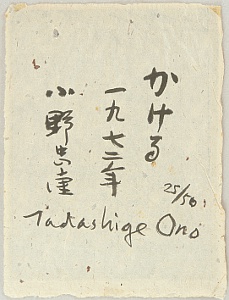 かける
一九七二年
小野忠重
25/50
Tadashige Ono